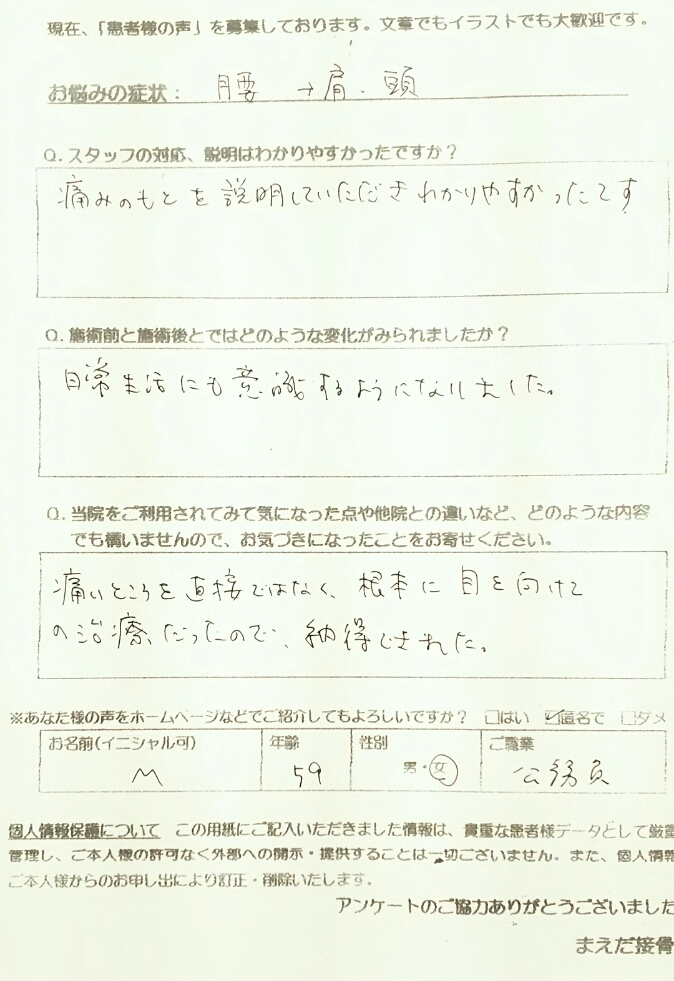 現在、「患者様の声」を募集しております。文章でもイラストでも大歓迎です。
お悩みの症状： 腰 → 肩・頭
Q. スタッフの対応、説明はわかりやすかったですか？
痛みのもとを説明していただきわかりやすかったです
Q. 施術前と施術後とではどのような変化がみられましたか？
日常生活にも意識するようになりました。
Q. 当院をご利用されてみて気になった点や他院との違いなど、どのような内容
でも構いませんので、お気づきになったことをお寄せください。
痛いところを直接ではなく、根本に目を向けて
の治療だったので、納得できました。
※あなた様の声をホームページなどでご紹介してもよろしいですか？ □はい ☑匿名で □ダメ
お名前(イニシャル可) 年齢 性別 ご職業
M 59 男・女 公務員
個人情報保護について この用紙にご記入いただきました情報は、貴重な患者様データとして厳重
管理し、ご本人様の許可なく外部への開示・提供することは一切ございません。また、個人情報
ご本人様からのお申し出により訂正・削除いたします。
アンケートのご協力ありがとうございました
まえだ接骨